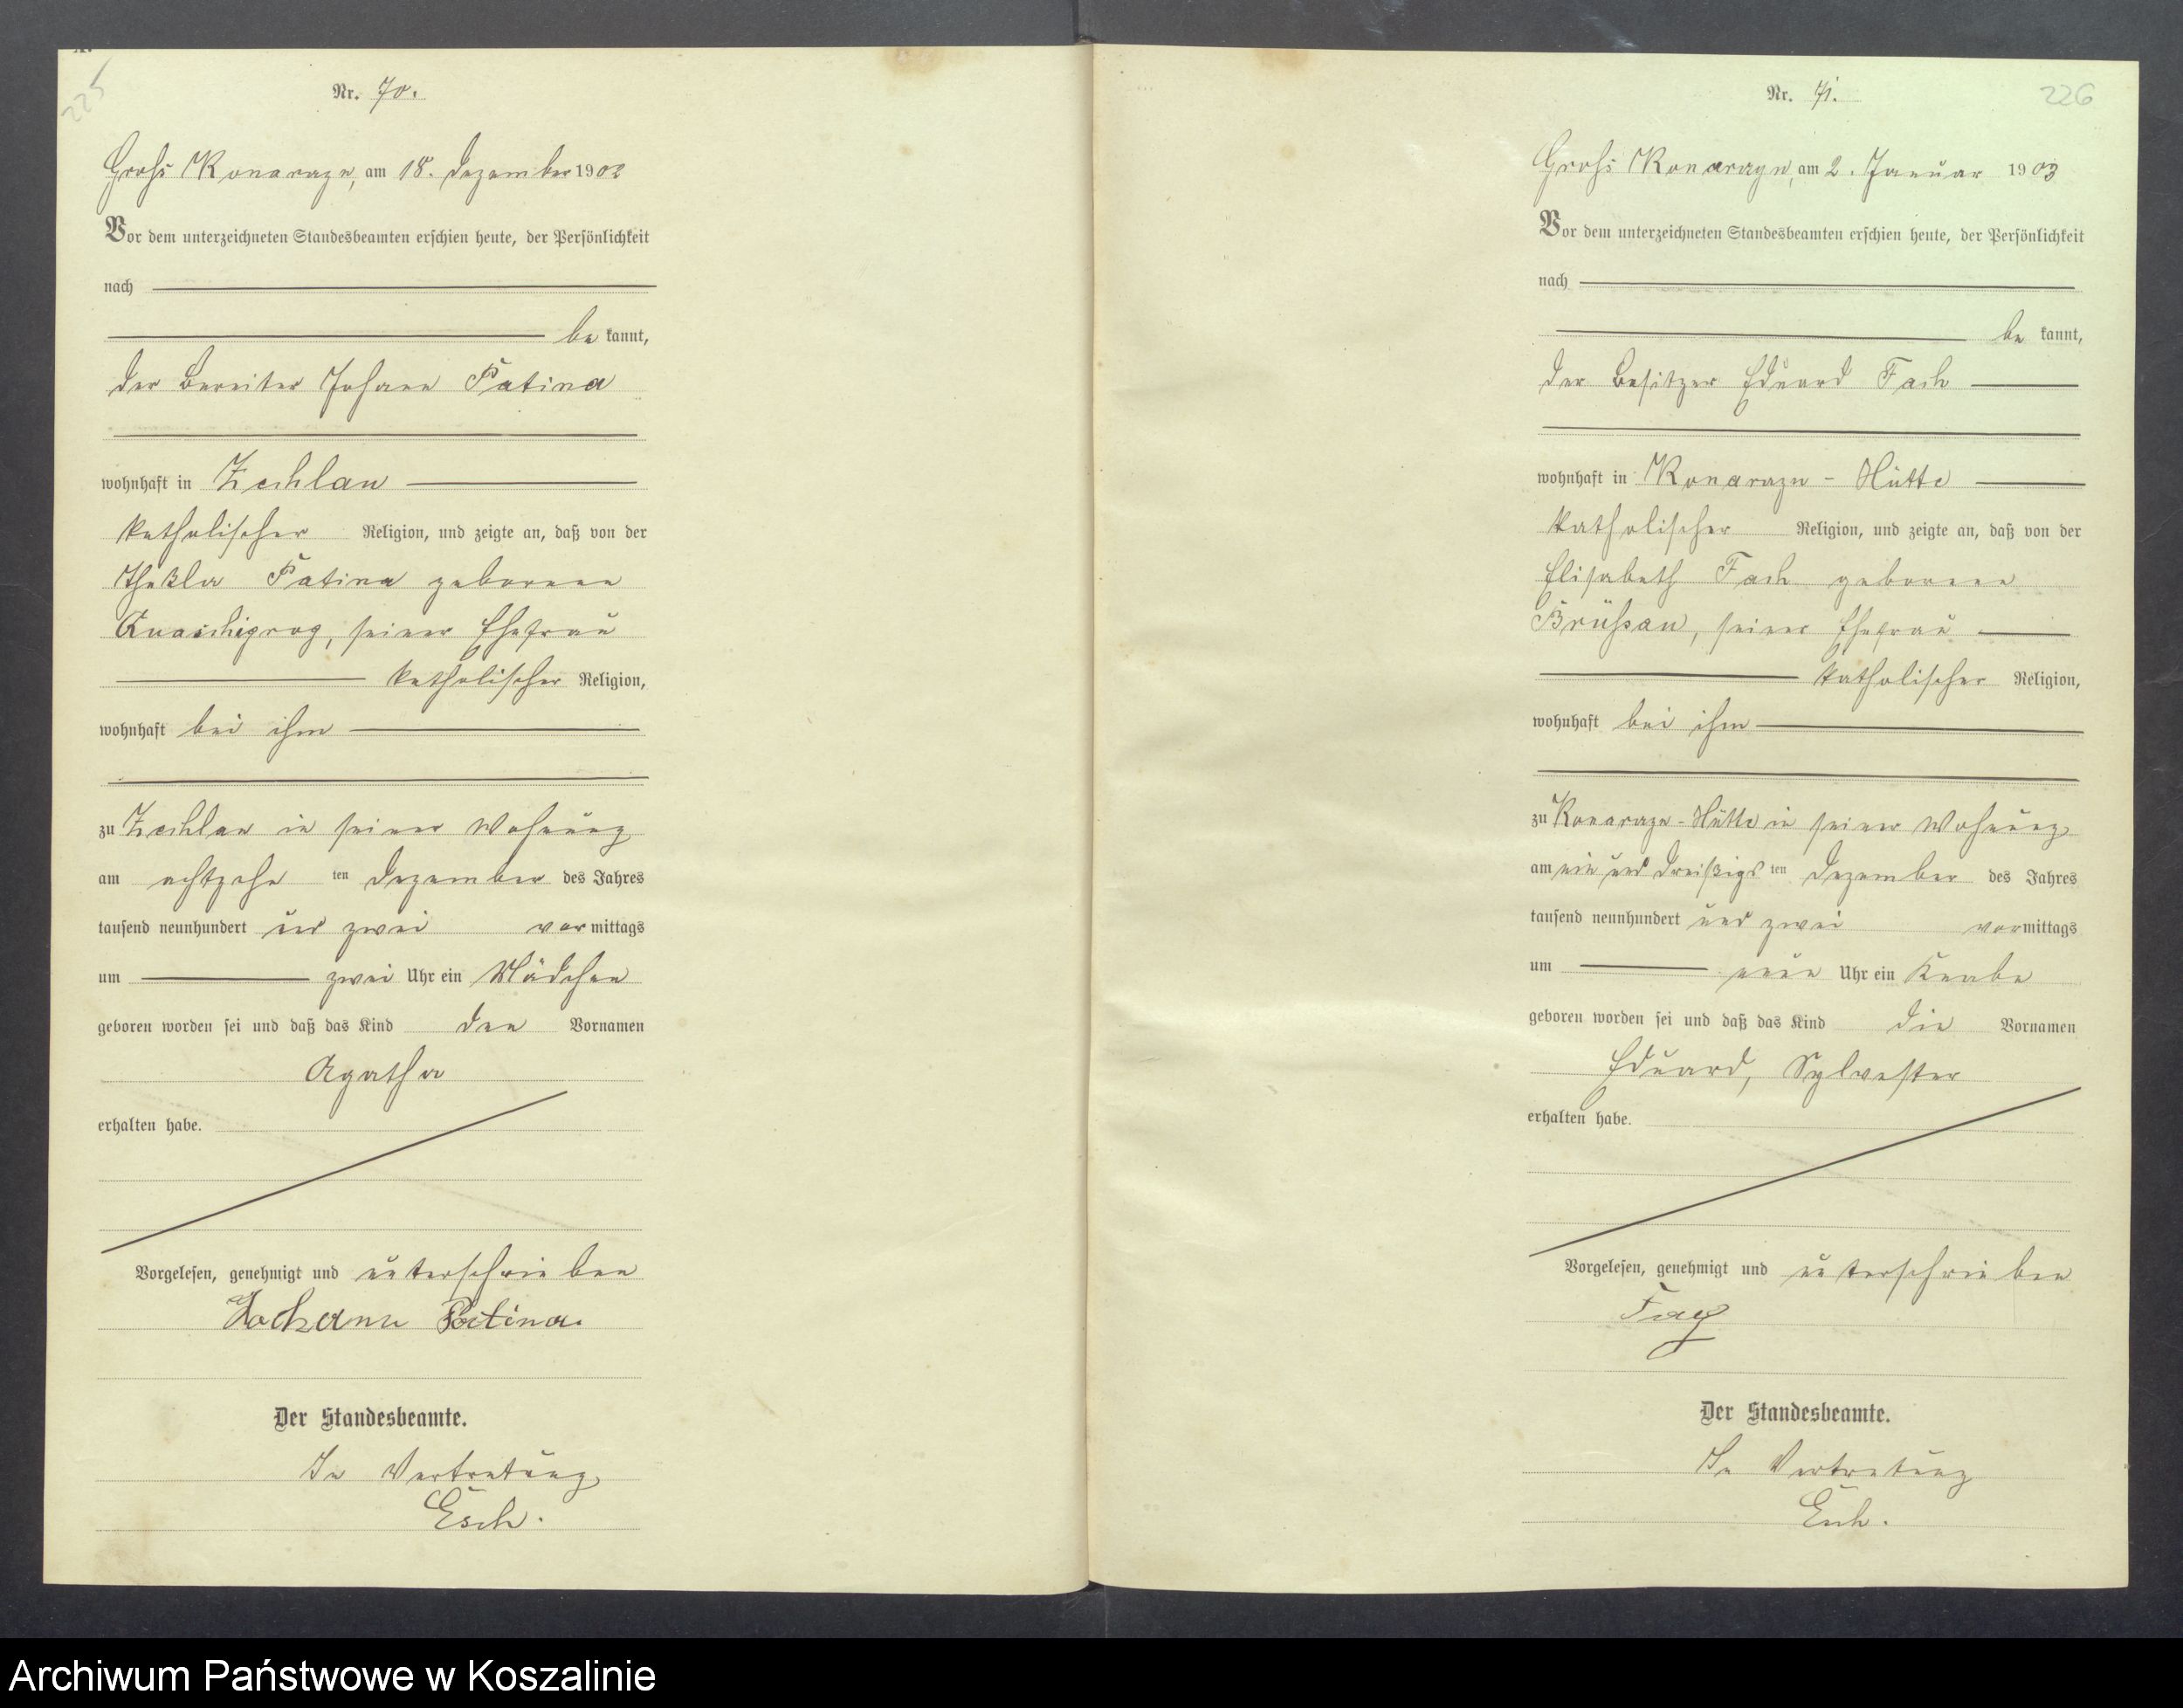 225
Nr. 70.
Groß Konarzyn, am 18. Dezember 1902
Vor dem unterzeichneten Standesbeamten erschien heute, der Persönlichkeit
nach
be kannt,
der Bereiter Johann Patina
wohnhaft in Zechlau
katholischer Religion, und zeigte an, daß von der
Thekla Patina geborene
seiner Ehefrau
katholischer Religion,
wohnhaft bei ihm
zu Zechlau in seiner Wohnung
am achtzehn ten Dezember des Jahres
tausend neunhundert und zwei vormittags
um zwei Uhr ein Mädchen
geboren worden sei und daß das Kind den Vornamen
Agatha
erhalten habe.
Vorgelesen, genehmigt und unterschrieben
Johann Patina.
Der Standesbeamte.
In Vertretung
Esch.
226
Nr. 71.
Groß Konarzyn, am 2. Januar 1903
Vor dem unterzeichneten Standesbeamten erschien heute, der Persönlichkeit
nach
be kannt,
der Besitzer Eduard Fach
wohnhaft in Konarzyn-Hütte
katholischer Religion, und zeigte an, daß von der
Elisabeth Fach geborene
seiner Ehefrau
katholischer Religion,
wohnhaft bei ihm
zu Konarzyn-Hütte in seiner Wohnung
am ein und dreißigs ten Dezember des Jahres
tausend neunhundert und zwei vormittags
um neun Uhr ein Knabe
geboren worden sei und daß das Kind die Vornamen
Eduard, Sylvester
erhalten habe.
Vorgelesen, genehmigt und unterschrieben
Der Standesbeamte.
In Vertretung
Esch.
Archiwum Państwowe w Koszalinie